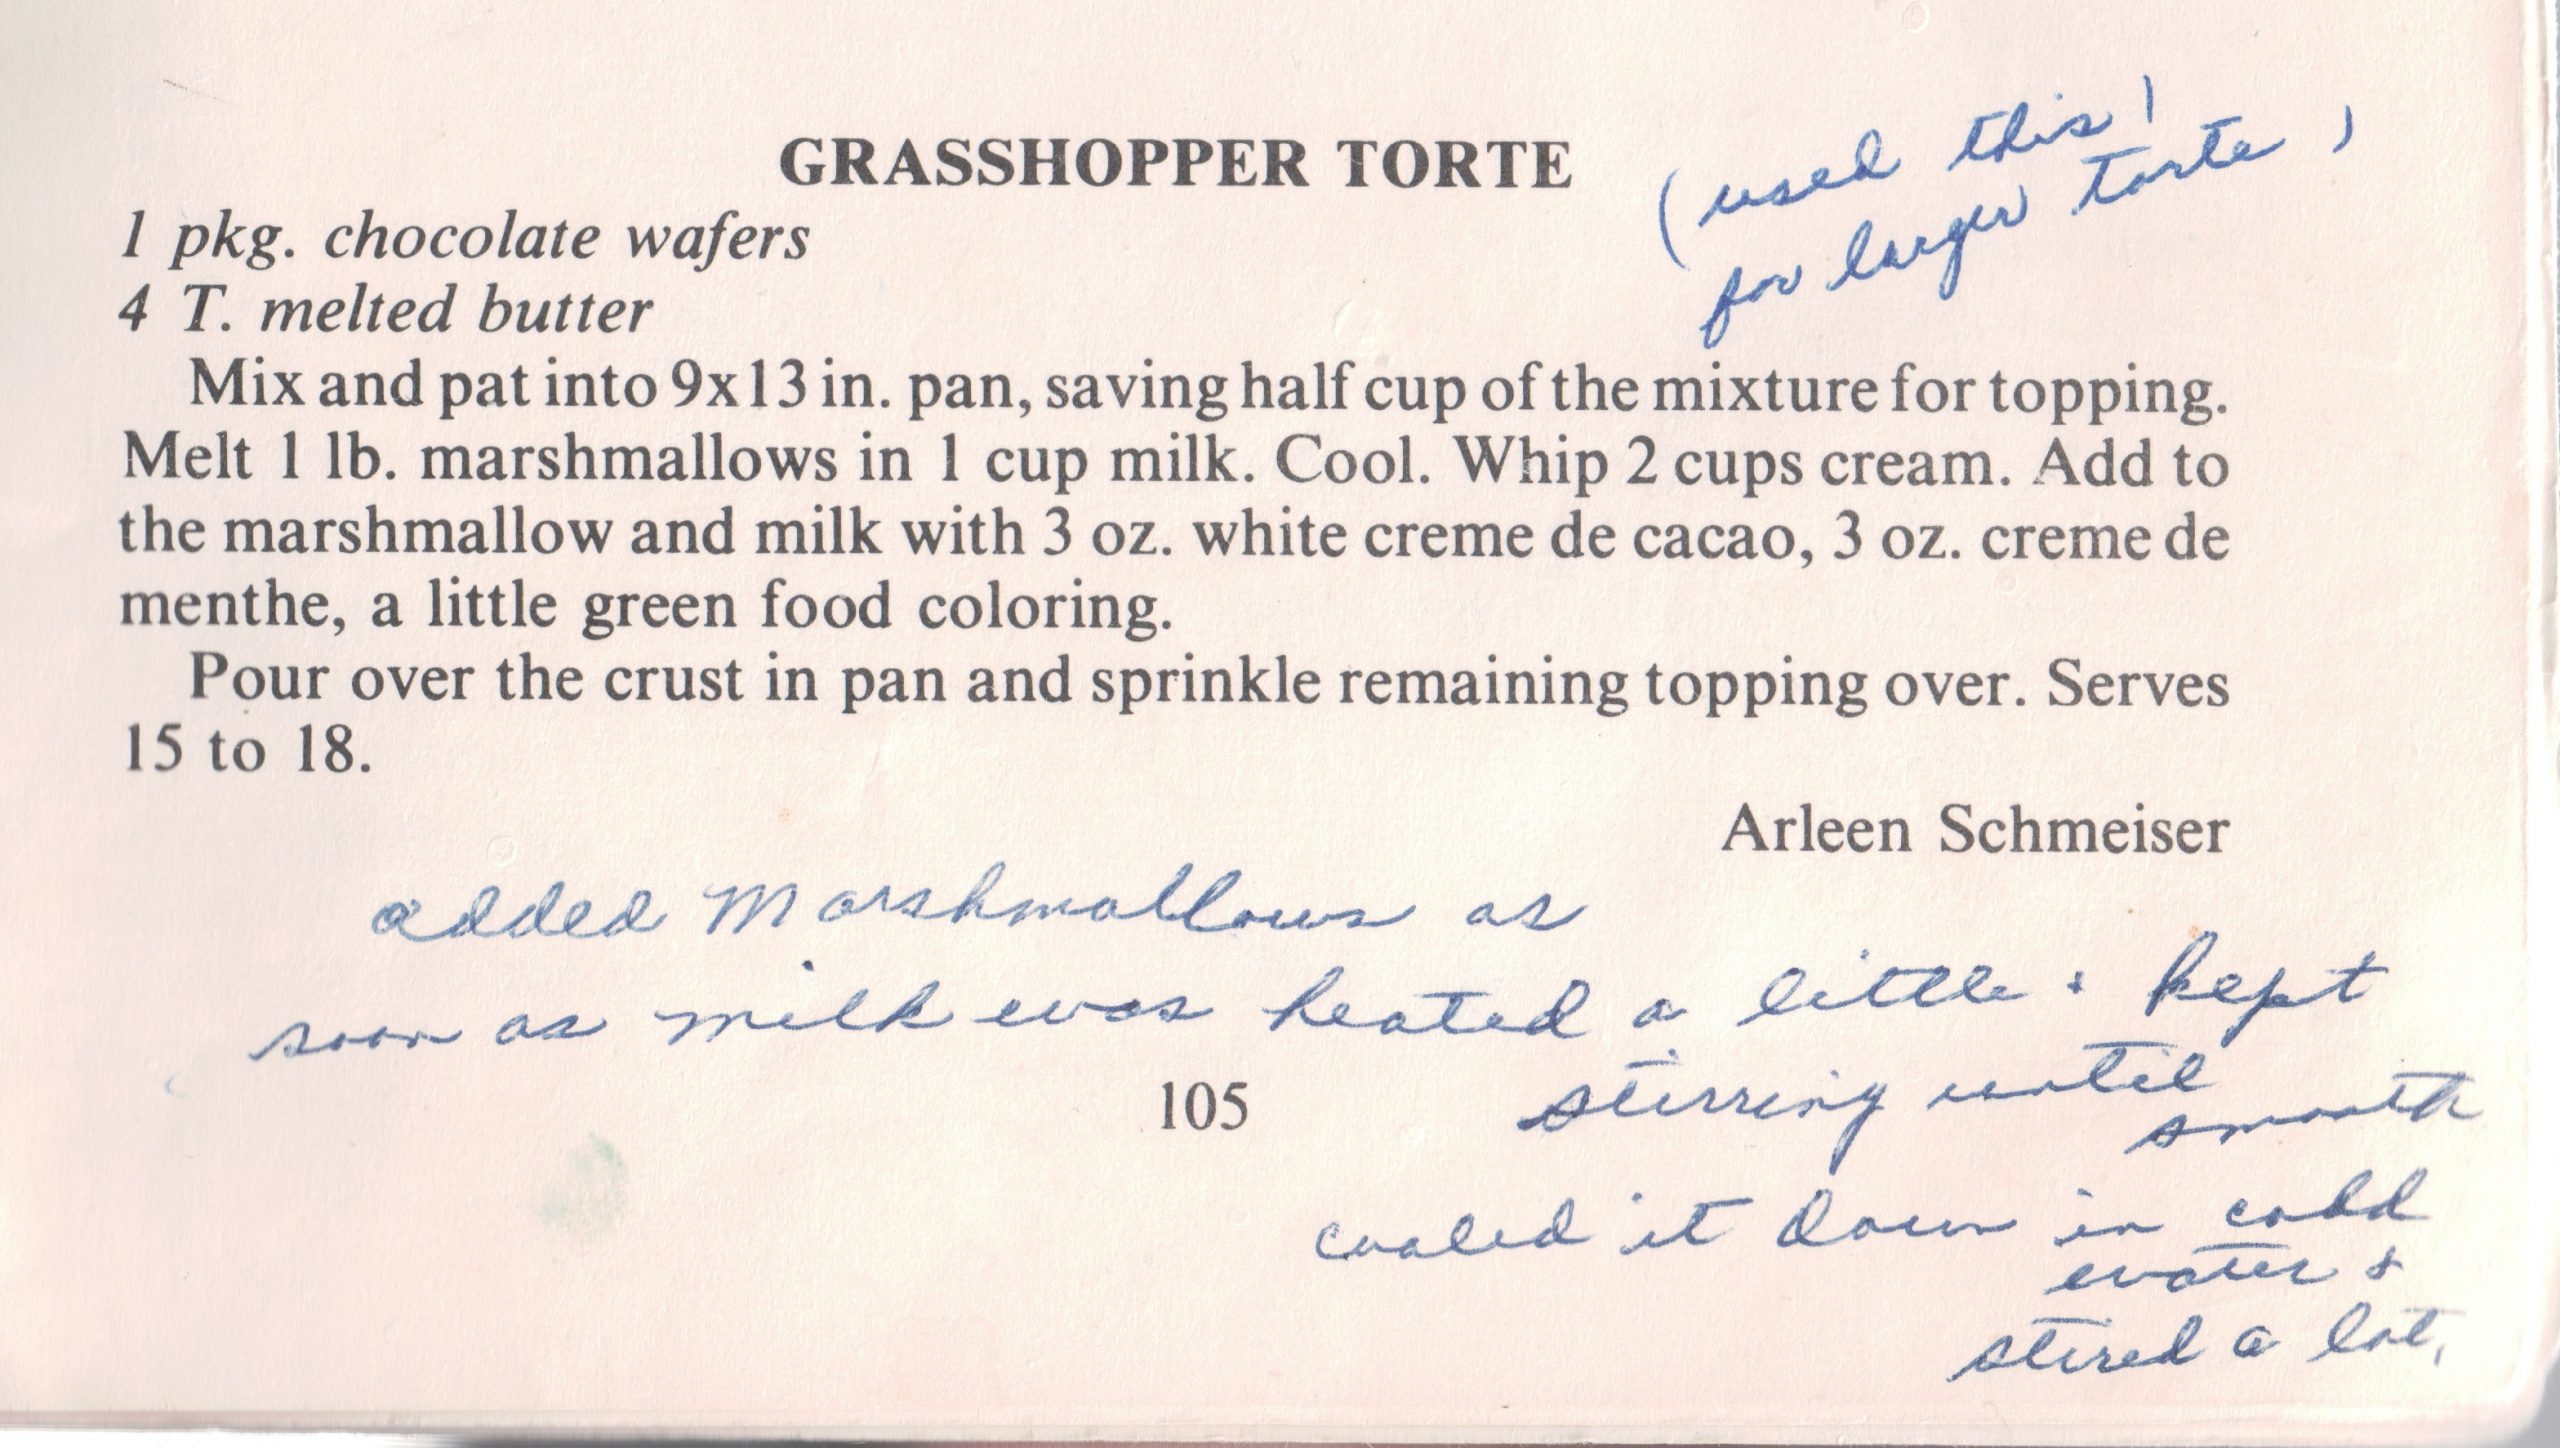 GRASSHOPPER TORTE
(used this)
for larger torte)
1 pkg. chocolate wafers
4 T. melted butter
Mix and pat into 9x13 in. pan, saving half cup of the mixture for topping.
Melt 1 lb. marshmallows in 1 cup milk. Cool. Whip 2 cups cream. Add to
the marshmallow and milk with 3 oz. white creme de cacao, 3 oz. creme de
menthe, a little green food coloring.
Pour over the crust in pan and sprinkle remaining topping over. Serves
15 to 18.
Arleen Schmeiser
added Marshmallows as
soon as milk was heated a little & kept
stirring until
smooth
105
cooled it down in cold
water &
stired a lot,